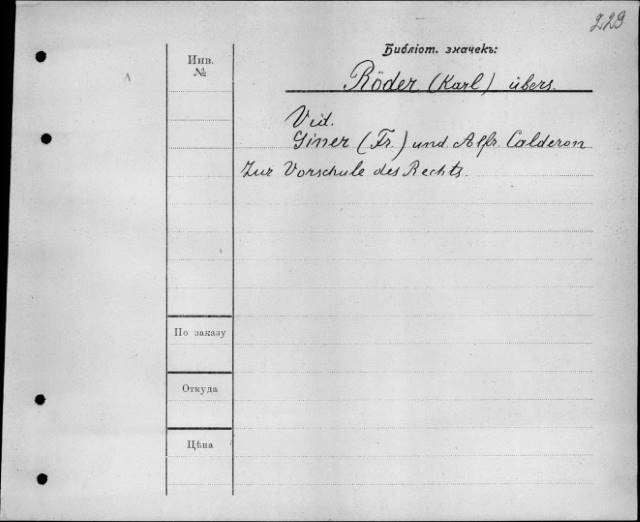 229
Библіот. значекъ:
Инв.
№
Röder (Karl) übers.
Vid.
Giner (Fr.) und Alfr. Calderon
Zur Vorschule des Rechts.
По заказу
Откуда
Цѣна